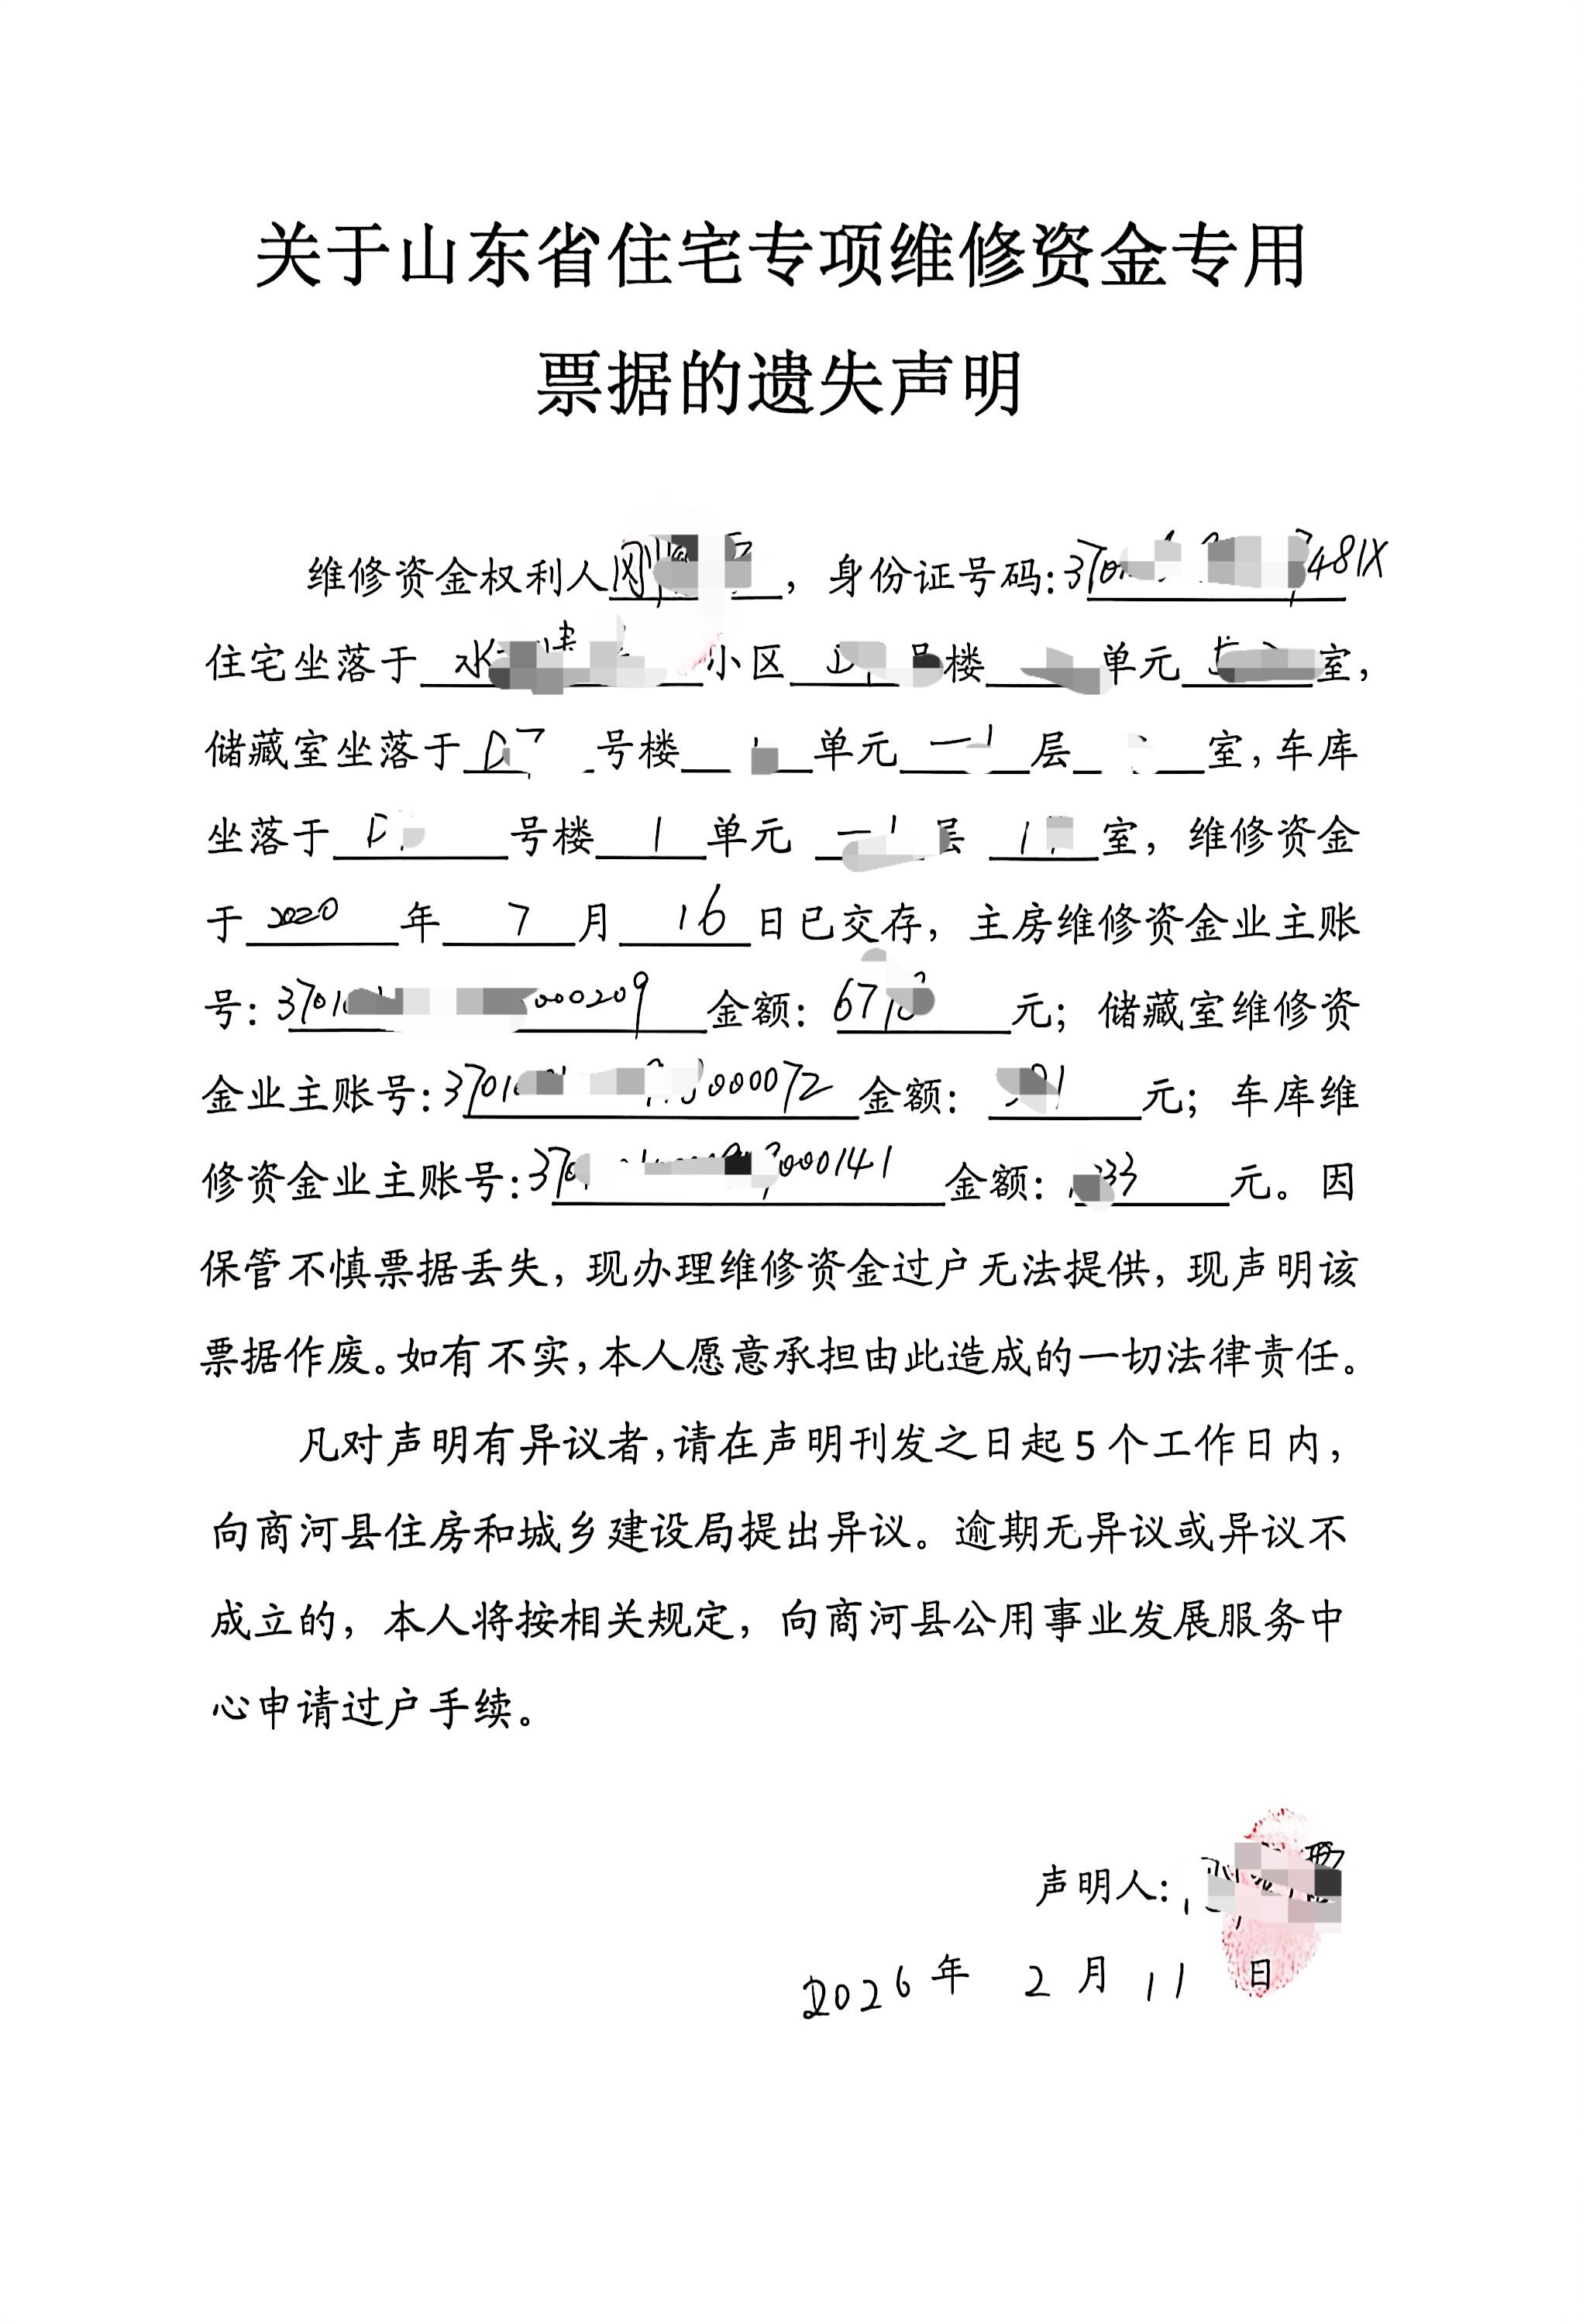 关于山东省住宅专项维修资金专用
票据的遗失声明
维修资金权利人，身份证号码:370 481X
住宅坐落于 水 小区 号楼 单元 室，
储藏室坐落于 D 号楼 单元 -1 层 室，车库
坐落于 D 号楼 1 单元 层 室，维修资金
于 2020 年 7 月 16 日已交存，主房维修资金业主账
号：3701 000209 金额：67 元；储藏室维修资
金业主账号:3701 000072 金额： 元；车库维
修资金业主账号:370 000141 金额： 33 元。因
保管不慎票据丢失，现办理维修资金过户无法提供，现声明该
票据作废。如有不实，本人愿意承担由此造成的一切法律责任。
凡对声明有异议者，请在声明刊发之日起5个工作日内，
向商河县住房和城乡建设局提出异议。逾期无异议或异议不
成立的，本人将按相关规定，向商河县公用事业发展服务中
心申请过户手续。
声明人：
2026年 2 月 11 日